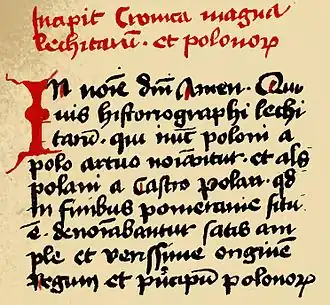 Incipit Cronica magna
lechitarū · et polonoꝝ
In noīe dn̄i Amen · Quā
uis historiographi lechi
tarū · qui nūc poloni a
polo artuo noīantur · et als
polani a Castro polan · qd
in finibus pomeranie situ
ē · denoīabantur satis am
ple et verissime originē
regum et pn̄cipū polonoꝝ